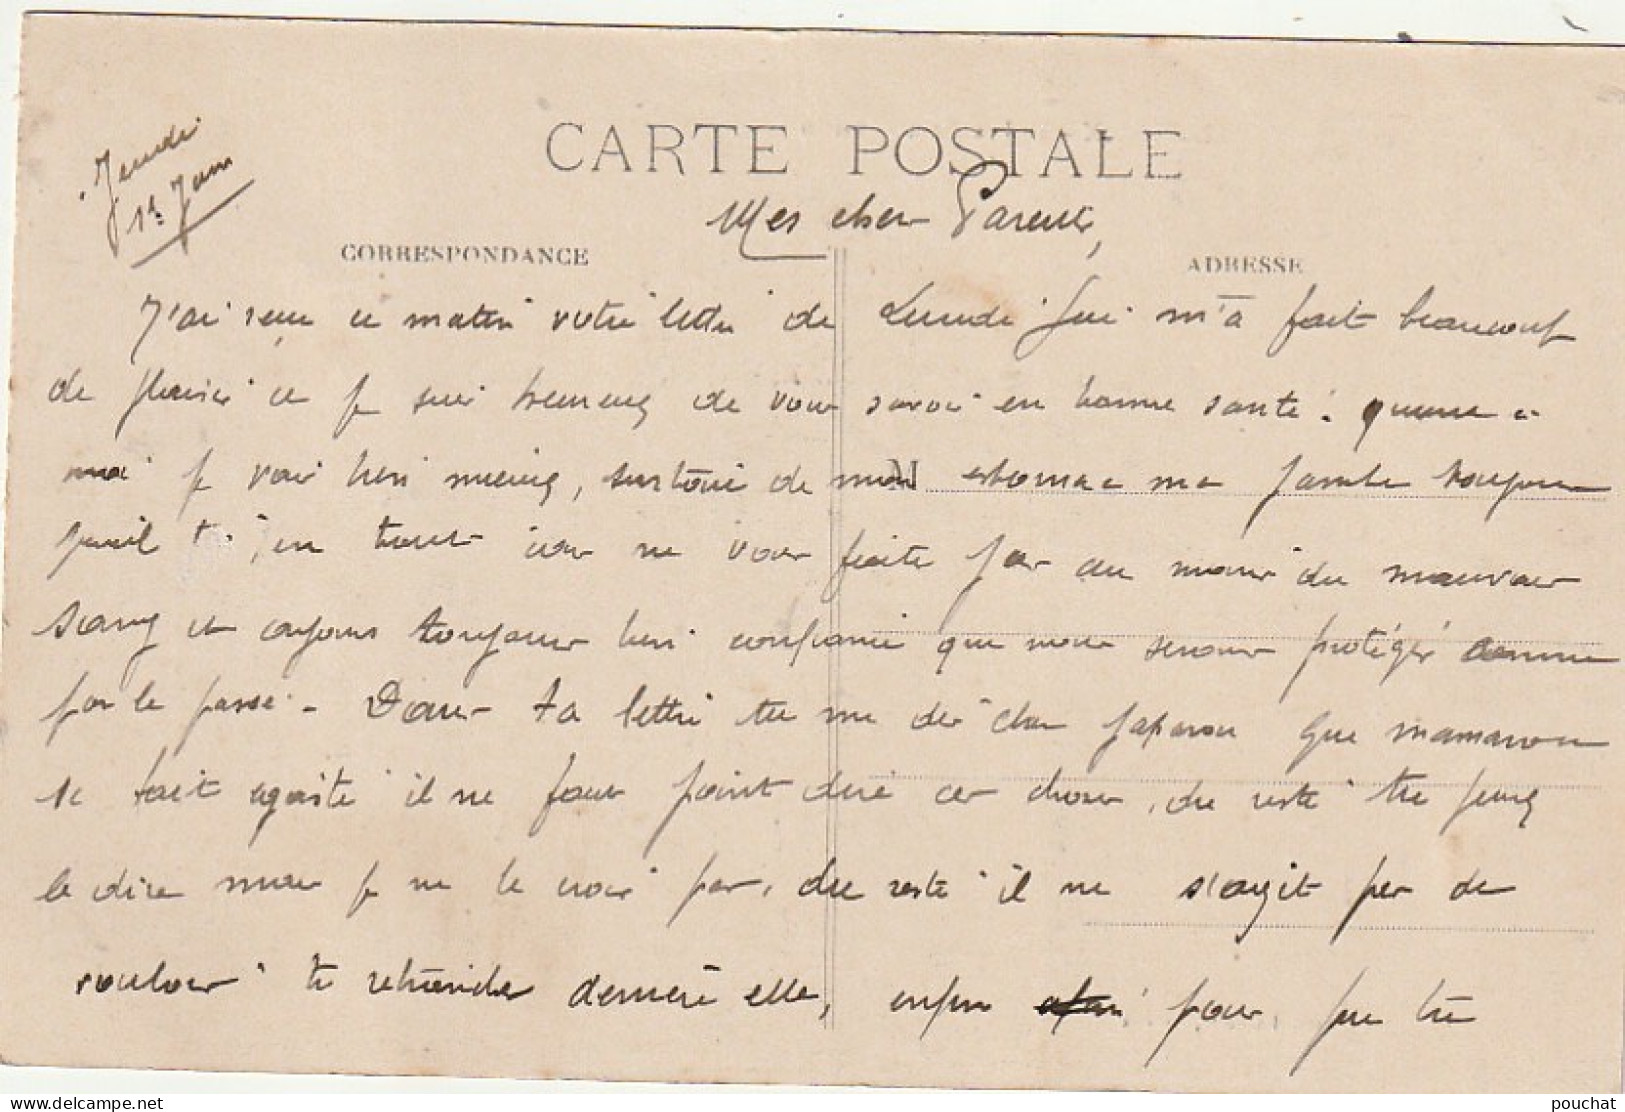 Jeudi
1r Janv
CARTE POSTALE
Mes cher Parents,
CORRESPONDANCE
ADRESSE
J'ai reçu ce matin votre lettre de Lundi qui m'a fait beaucoup
de plaisir et je suis heureux de vous savoir en bonne santé.
moi je vais bien mieux, surtout de mon estomac ma jambe toujours
en tout cas ne vous faite pas au moins du mauvais
sang et ayons toujours bien confiance que nous serons protégé comme
par le passé. - Dans ta lettre tu me dis cher papanou que mamanou
te fait il ne faut point dire ces choses, du reste tu peux
le dire mais je ne le crois pas, du reste il ne s'agit pas de
vouloir te retrancher derrière elle, enfin pour que tu
pouchat